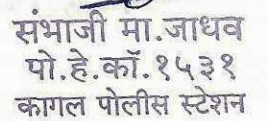 संभाजी मा.जाधव
पो.हे.कॉ.१५३१
कागल पोलीस स्टेशन